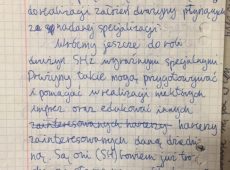 do realizacji zadań drużyny płynących
za
nadanej specjalizacji.
Wróćmy jeszcze do roli
drużyn SHz wyznaczonym specjalizacją
Drużyny takie mogą przygotowywać
i pomagać w realizacji niektórych
imprez oraz edukować innych
zainteresowanych harcerzy harcerzy
zainteresowanych daną dziedzi-
ną. Są oni (SH) bowiem już